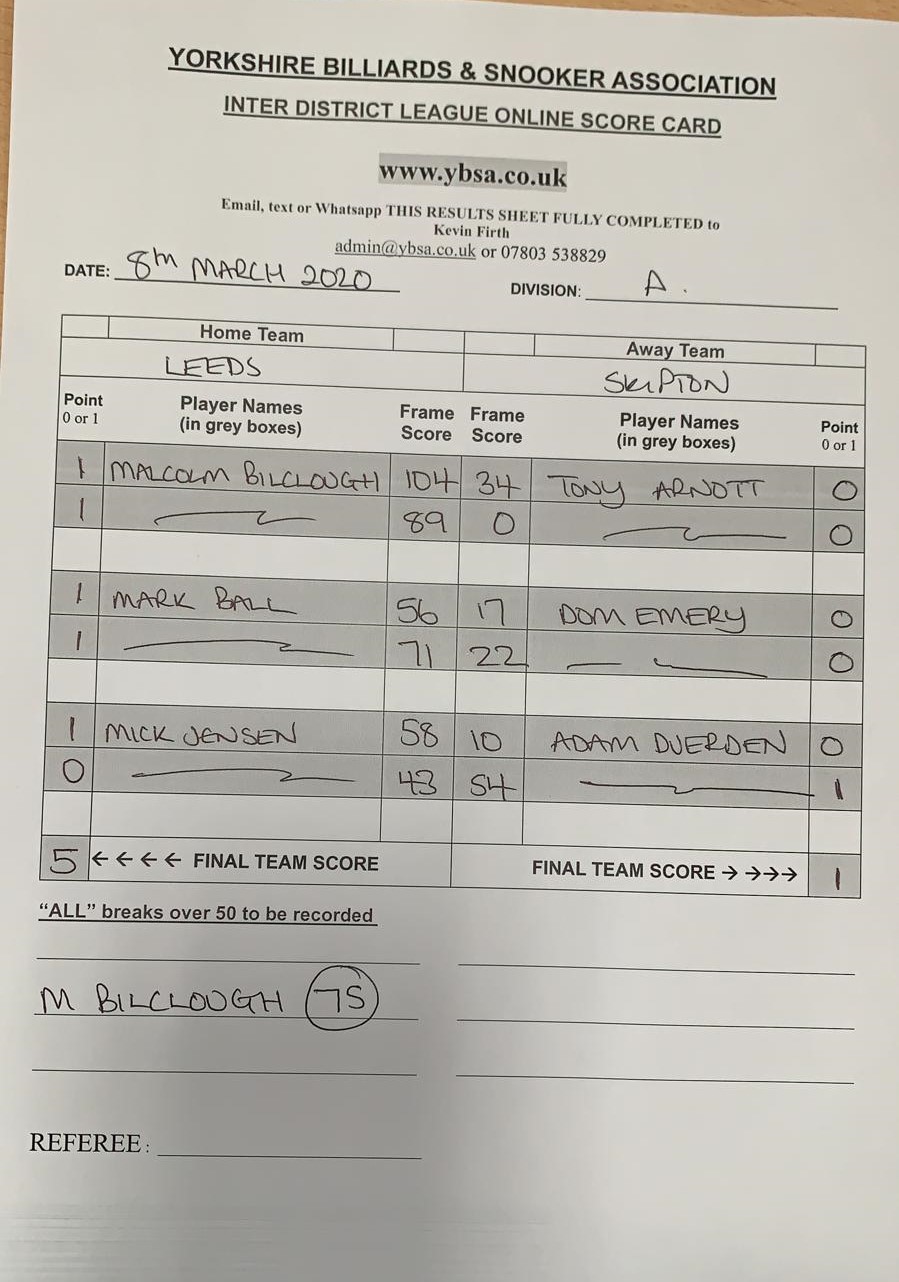 YORKSHIRE BILLIARDS & SNOOKER ASSOCIATION
INTER DISTRICT LEAGUE ONLINE SCORE CARD
www.ybsa.co.uk
Email, text or Whatsapp THIS RESULTS SHEET FULLY COMPLETED to
Kevin Firth
admin@ybsa.co.uk or 07803 538829
DATE: 8th MARCH 2020 DIVISION: A.
Home Team Away Team
LEEDS SKIPTON
Point 0 or 1 Player Names (in grey boxes) Frame Score Frame Score Player Names (in grey boxes) Point 0 or 1
1 MALCOLM BILCLOUGH 104 34 TONY ARNOTT 0
1 89 0 0
1 MARK BALL 56 17 DOM EMERY 0
1 71 22 0
1 MICK JENSEN 58 10 ADAM DUERDEN 0
0 43 54 1
5 ←←←← FINAL TEAM SCORE FINAL TEAM SCORE →→→→ 1
“ALL” breaks over 50 to be recorded
M BILCLOUGH 75
REFEREE: